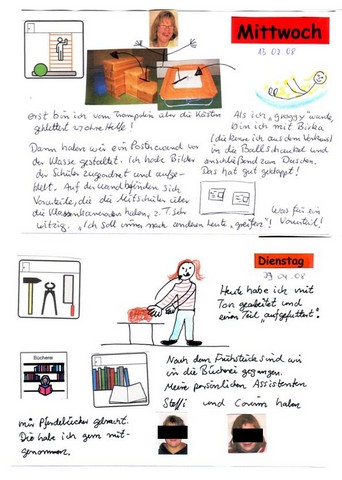 Mittwoch
13.02.08
erst bin ich vom Trampolin über die Kästen
geklettert ohne Hilfe!
Dann haben wir ein Posterwand vor
der Klasse gestaltet. Ich habe Bilder
der Schüler zugeordnet und aufge-
klebt. Auf der Wand befinden sich
Vorurteile, die die Mitschüler über
die Klassenkameraden haben, z.T. sehr
witzig. "Ich soll immer nach anderen Leute "greifen"!
Als ich "groggy" wurde,
bin ich mit
(die kenne ich aus dem Verbund)
in die Ballschaukel und
anschließend zum Duschen.
Das hat gut geklappt!
Was für ein
Vorurteil!
Dienstag
29.04.08
Heute habe ich mit
Ton gearbeitet und
einen Teil "aufgefuttert".
Bücherei
Nach dem Frühstück sind wir
in die Bücherei gegangen.
Meine persönlichen Assistenten
Steffi und Corinna haben
mir Pferdebücher gebracht.
Die habe ich gern mit-
genommen.